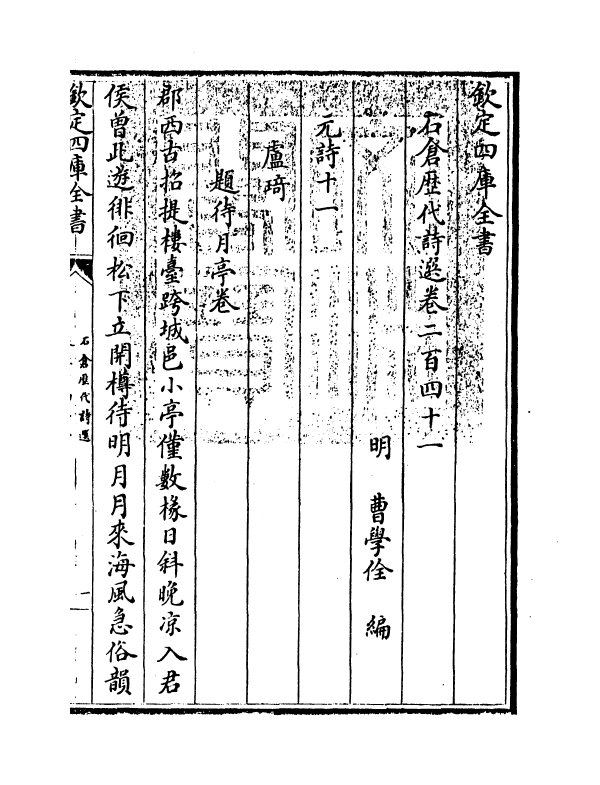 欽定四庫全書
石倉歴代詩選卷二百四十一
明　曹學佺　編
元詩十一
盧琦
題待月亭卷
郡西古招提樓臺跨城邑小亭僅數椽日斜晚凉入君
侯曾此遊徘徊松下立開樽待明月月來海風急俗韻
欽定四庫全書
石倉歴代詩選
一